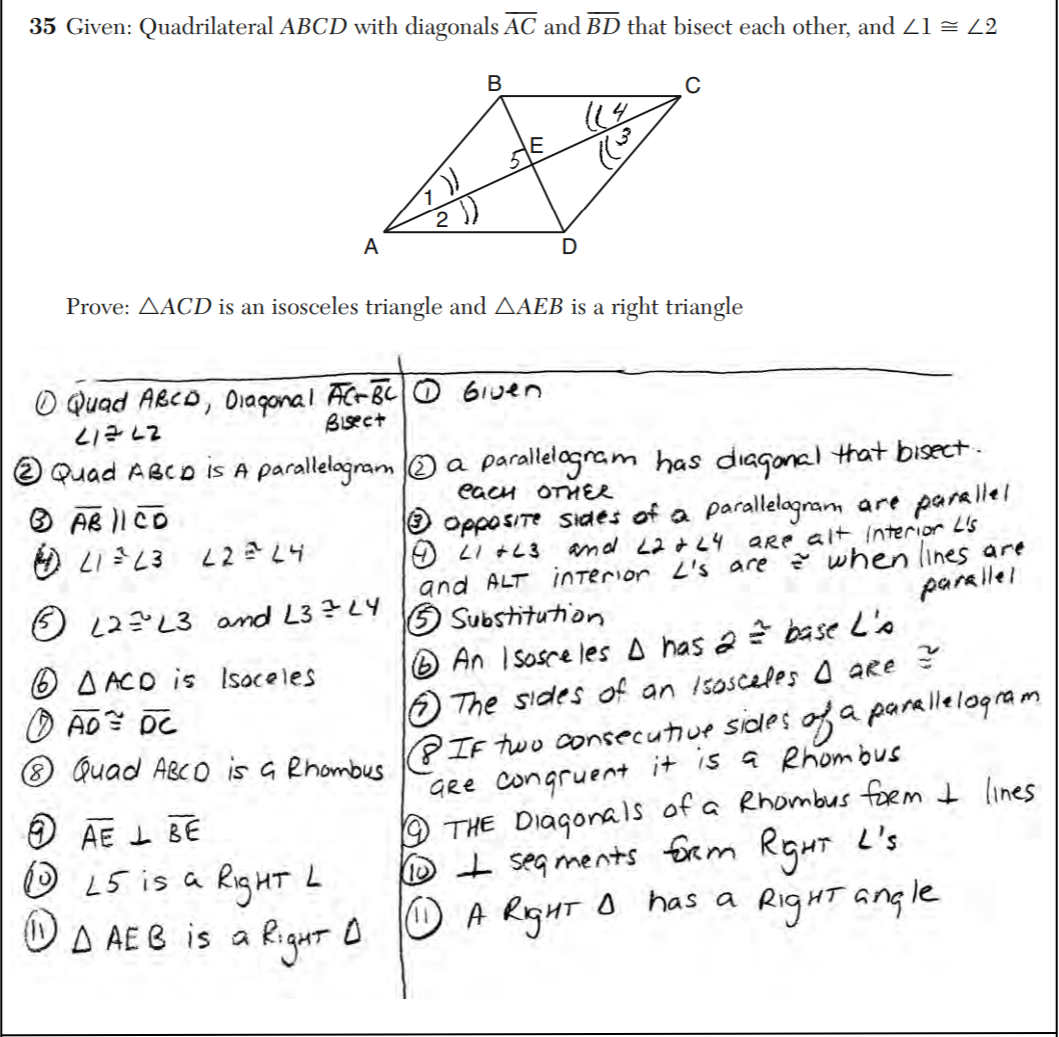 35 Given: Quadrilateral ABCD with diagonals AC and BD that bisect each other, and ∠1 ≅ ∠2
B
C
4
3
E
5
1
2
A
D
Prove: △ACD is an isosceles triangle and △AEB is a right triangle
① Quad ABCD, Diagonal AC + BC
Bisect
∠1 ≅ ∠2
① Given
② Quad ABCD is A parallelogram
② a parallelogram has diagonal that bisect.
each OTHER
③ AB || CD
③ opposite sides of a parallelogram are parallel
④ ∠1 ≅ ∠3 ∠2 ≅ ∠4
④ ∠1 + ∠3 and ∠2 + ∠4 are alt interior ∠'s
and ALT interior ∠'s are ≅ when lines are
parallel
⑤ ∠2 ≅ ∠3 and ∠3 ≅ ∠4
⑤ Substitution
⑥ △ ACD is Isoceles
⑥ An Isosceles △ has 2 ≅ base ∠'s
⑦ AD ≅ DC
⑦ The sides of an Isosceles △ are ≅
⑧ Quad ABCD is a Rhombus
⑧ IF two consecutive sides of a parallelogram
are congruent it is a Rhombus
⑨ AE ⊥ BE
⑨ THE Diagonals of a Rhombus form ⊥ lines
⑩ ∠5 is a RIGHT ∠
⑩ ⊥ segments form RIGHT ∠'s
⑪ △ AEB is a RIGHT △
⑪ A RIGHT △ has a RIGHT angle